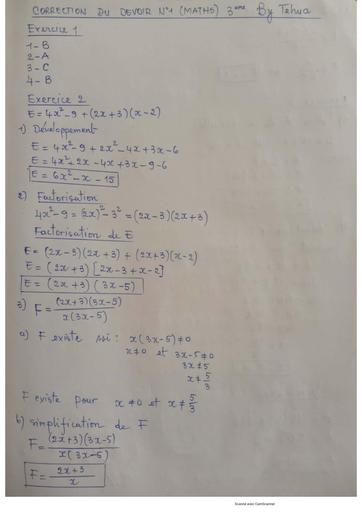 CORRECTION DU DEVOIR N°1 (MATHS) 3ème By Tehua
Exercice 1
1-B
2-A
3-C
4-B
Exercice 2
E=4x²-9+(2x+3)(x-2)
1) Développement
E=4x²-9+2x²-4x+3x-6
E=4x²+2x-4x+3x-9-6
E=6x²-x-15
2) Factorisation
4x²-9=(2x)²-3²=(2x-3)(2x+3)
Factorisation de E
E=(2x-3)(2x+3)+(2x+3)(x-2)
E=(2x+3)[2x-3+x-2]
E=(2x+3)(3x-5)
3) F=(2x+3)(3x-5)/x(3x-5)
a) F existe ssi: x(3x-5)≠0
x≠0 et 3x-5≠0
3x≠5
x≠5/3
F existe pour x≠0 et x≠5/3
b) simplification de F
F=(2x+3)(3x-5)/x(3x-5)
F=2x+3/x
Scanné avec CamScanner